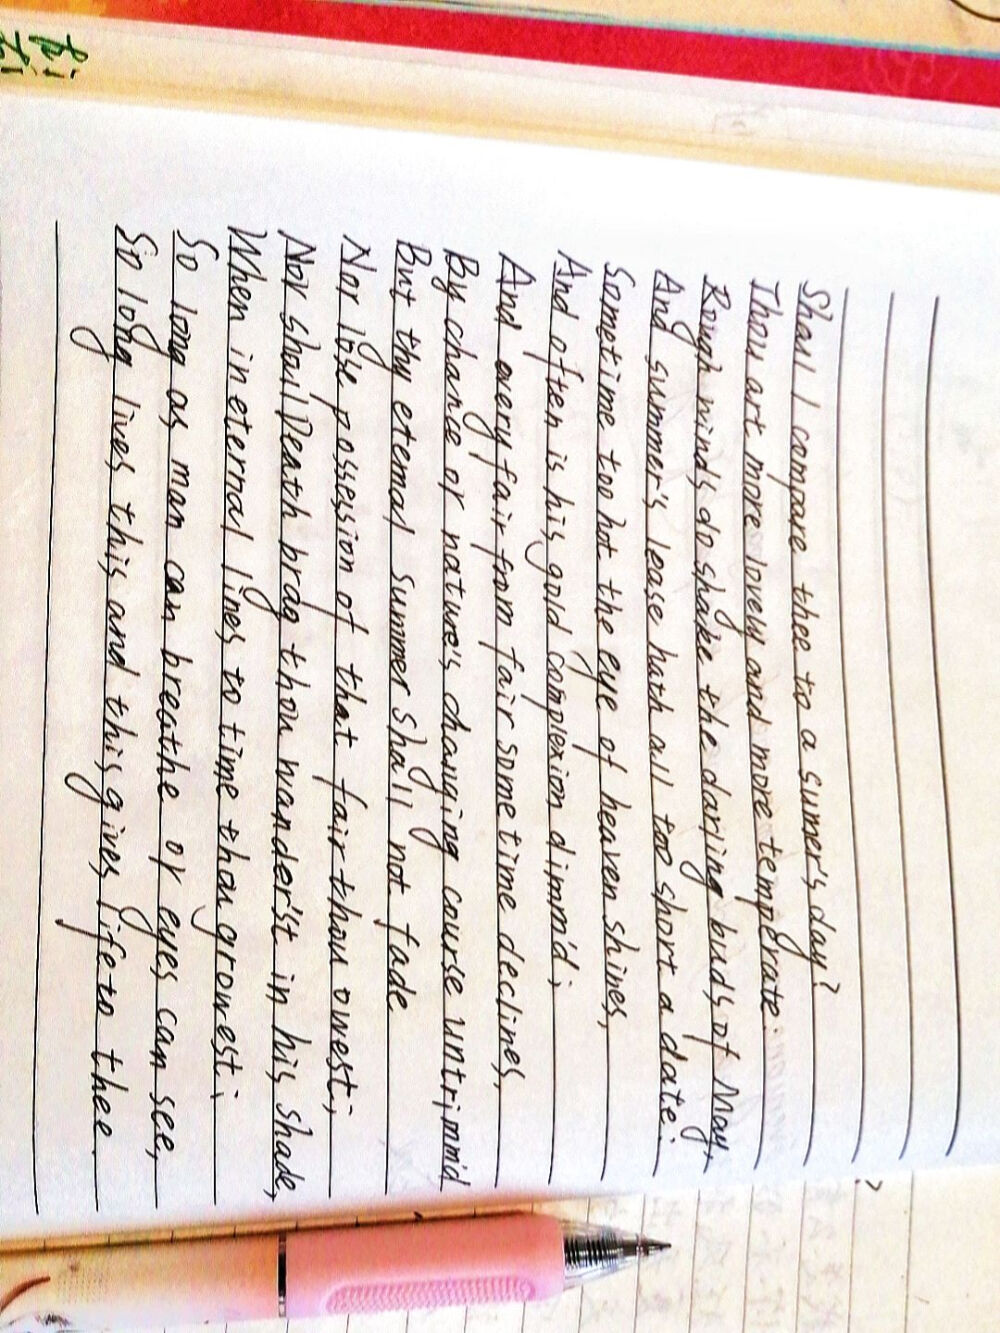 Shall I compare thee to a sumer's day?
Thou art more lovely and more temperate:
Rough winds do shake the darling buds of May,
And summer's lease hath all too short a date:
Sometime too hot the eye of heaven shines,
And often is his gold complexion dimm'd;
And every fair from fair sometime declines,
By chance or nature's changing course untrimmid
But thy eternal summer shall not fade
Nor lose possession of that fair thou owest;
Nor shall Death brag thou wander'st in his shade,
When in eternal lines to time thou growest;
So long as man can breathe or eyes can see,
So long lives this and this gives life to thee.